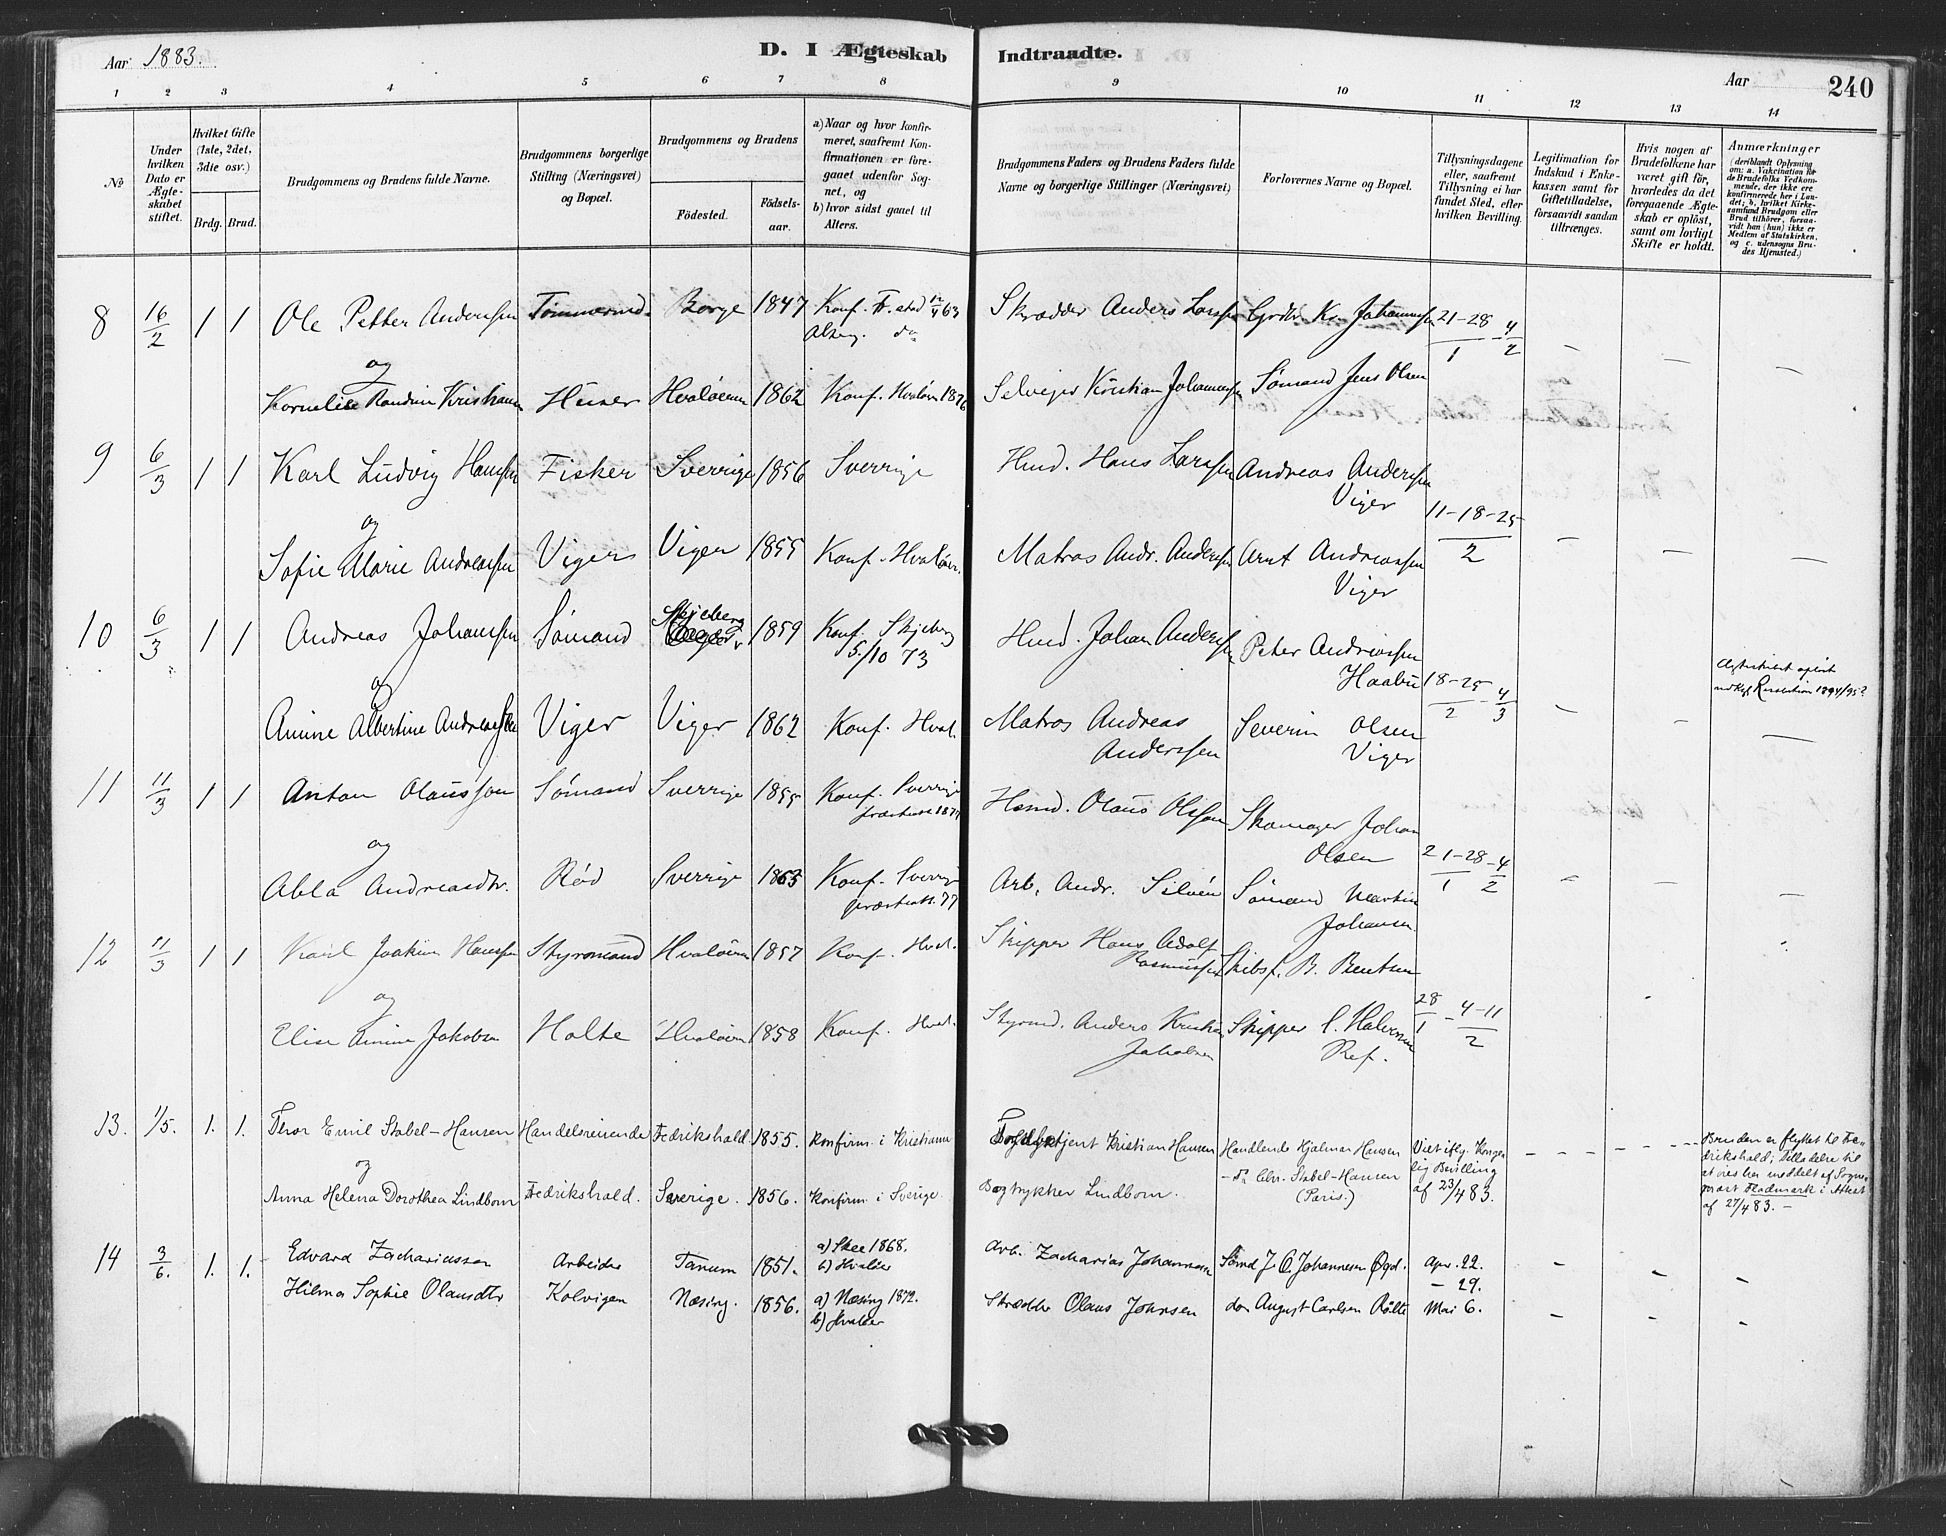 Aar 1883.
D. I Ægteskab Indtraadte.
Aar 240
1 2 3 4 5 6 7 8 9 10 11 12 13 14
No
Under hvilken Dato er Ægteskabet stiftet.
Hvilket Gifte (1ste, 2det, 3die osv.)
Brdg. Brud.
Brudgommens og Brudens fulde Navne.
Brudgommens borgerlige Stilling (Næringsvei) og Bopæl.
Brudgommens og Brudens
Fødested. Fødselsaar.
a) Naar og hvor Konfirmeret, saafremt Konfirmationen er foregaaet udenfor Sognet, og
b) hvor sidst gaaet til Alters.
Brudgommens Faders og Brudens Faders fulde Navne og borgerlige Stillinger (Næringsvei)
Forlovernes Navne og Bopæl.
Tillysningsdagene eller, saafremt Tillysning ei har fundet Sted, efter hvilken Bevilling.
Legitimation for Indskud i Enkekassen samt for Giftetilladelse, forsaavidt saadan tiltrænges.
Hvis nogen af Brudefolkene har været gift før, hvorledes da det foregaaende Ægteskab er opløst, samt om lovligt Skifte er holdt.
Anmærkninger
(deriblandt Oplysning om: a. Vakcination for de Brudefolks Vedkommende, der ikke ere konfirmerede her i Landet; b. hvilket Kirkesamfund Brudgom eller Brud tilhører, forsaavidt han (hun) ikke er Medlem af Statskirken, og c. udensogns Brudes Hjemsted.)
8 16/2 1 1 Ole Petter Andersen Tømmermd. Borge 1847 Konf. Fr.stad 12/4 63 Skrædder Anders Larssen Johannessen 21-28/1 - 4/2
og
Kornelise Randine Kristians Huser Hvaløerne 1862 Konf. Hvaløer 1876 Selveier Kristian Johannessen Sømand Jens Olsen
9 6/3 1 1 Karl Ludvig Hanssen Fisker Sverrige 1856 Sverrige Hmd. Hans Larssen Andreas Anderssen
Viger
11-18-25/2
og
Sofie Marie Andreassen Viger Viger 1855 Konf. Hvaløer. Matros Andr. Anderssen Arnt Andreassen
Viger
10 6/3 1 1 Andreas Johanssen Sømand Skjeberg 1859 Konf. Skjeberg Hmd. Johan Anderssen Peter Andreassen
5/10 73
Haabu
18-25/2 - 4/3
og
Amine Albertine Andreassen Viger Viger 1862 Konf. Hval. Matros Andreas Severin Olsen
Anderssen Viger
Resolution 1894/95
11 11/3 1 1 Anton Olausson Sømand Sverrige 1855 Konf. Sverrige Hemd. Olaus Olsson Skomager Johan
Olsen
21-28/1 - 4/2
og
Abla Andreasdtr. Rød Sverrige 1863 Konf. Sverrige Arb. Andr. Silvén Sømand Martin
Johansen
12 11/3 1 1 Karl Joakim Hanssen Styrmand Hvaløerne 1857 Konf. Hval. Skipper Hans Adolf Skibsf. B. Bentsen
Rasmussen
og
28/1 - 4-11/2
Elise Amine Jakobsen Holte Hvaløerne 1858 Konf. Hval. Styrmd. Anders Kristian Skipper C. Halvorsen
Jakobsen Ref.
13. 1/5. 1. 1. Emil Stabel-Hansen Handelsreisende Fredrikshald. 1855. Konfirm. i Kristiania Kristian Hansen Handlende Hjalmar Hansen Viet iflg. Kongelig Bevilling
og
Anna Helena Dorothea Lindbom Fredrikshald. Sverige. 1856. Konfirm. i Sverige. Bogtrykker Lindbom. Do Chr. Stabel-Hansen
(Paris.) af 23/4 83.
Bruden er flyttet til Fredrikshald; Tilladelse til at vies her meddelt af Sognepræst Flodmark i Attest af 27/4 83.
14 3/6. 1. 1. Edvard Zachariassen Arbeider Tanum 1851. a) Skee 1868. Arb. Zacharias Johannesen Sømd J. C. Johannesen Apr. 22.
b) Hvaløer
- 29.
Hilma Sophie Olausdtr Kolvigen Næsing. 1856. a) Næsing 1872. Skrædder Olaus Johnsen do August Carlsen Mai 6.
b) Hvaløer